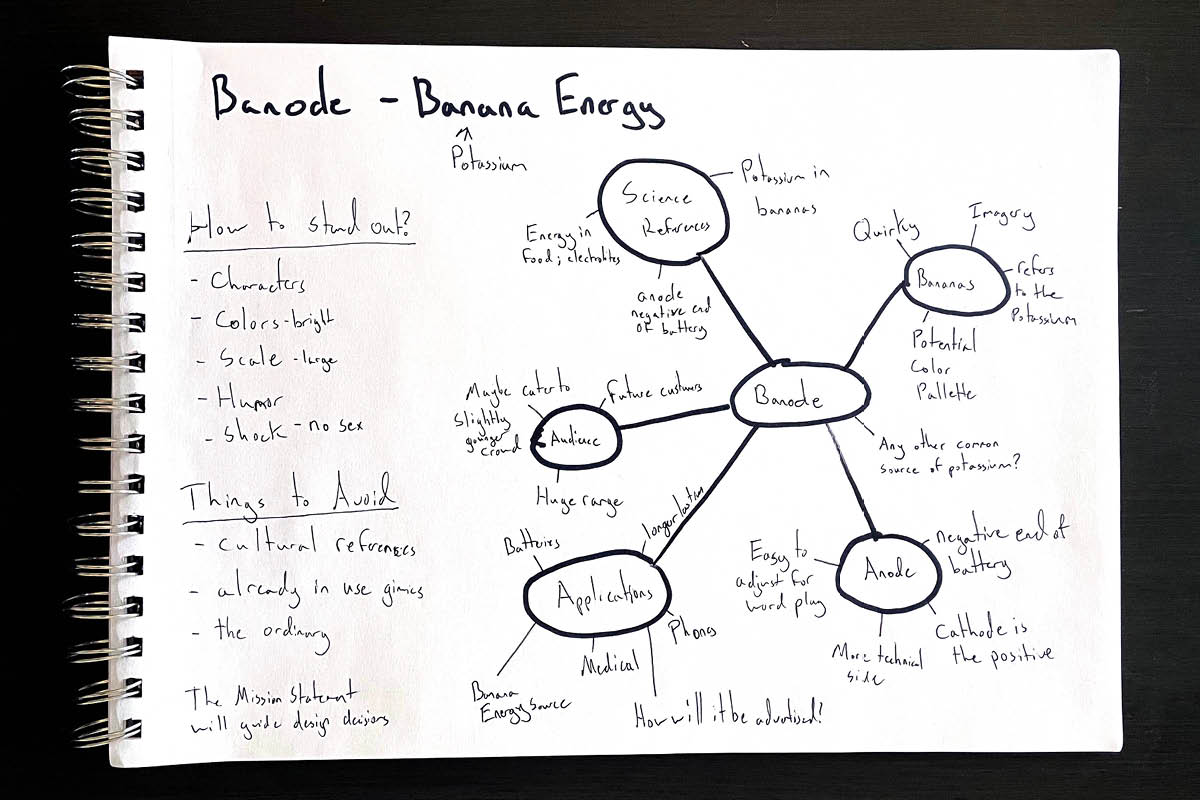 Banode - Banana Energy
Potassium
How to stand out?
- Characters
- Colors - bright
- Scale - large
- Humor
- Shock - no sex
Things to Avoid
- cultural references
- already in use gimics
- the ordinary
The Mission Statement
will guide design decisions
Science
References
Potassium in
bananas
Energy in
food; electrolites
anode
negative end
of battery
Bananas
Quirky
Imagery
refers
to the
Potassium
Potential
Color
Pallette
Banode
Any other common
source of potassium?
Audience
Maybe cater to
slightly
younger
crowd
future custumers
Huge range
Applications
Batteires
longer
Phones
Medical
Banana
Energy Source
How will it be advertised?
Anode
Easy to
adjust for
word play
negative end of
battery
Cathode is
the positive
More technical
side